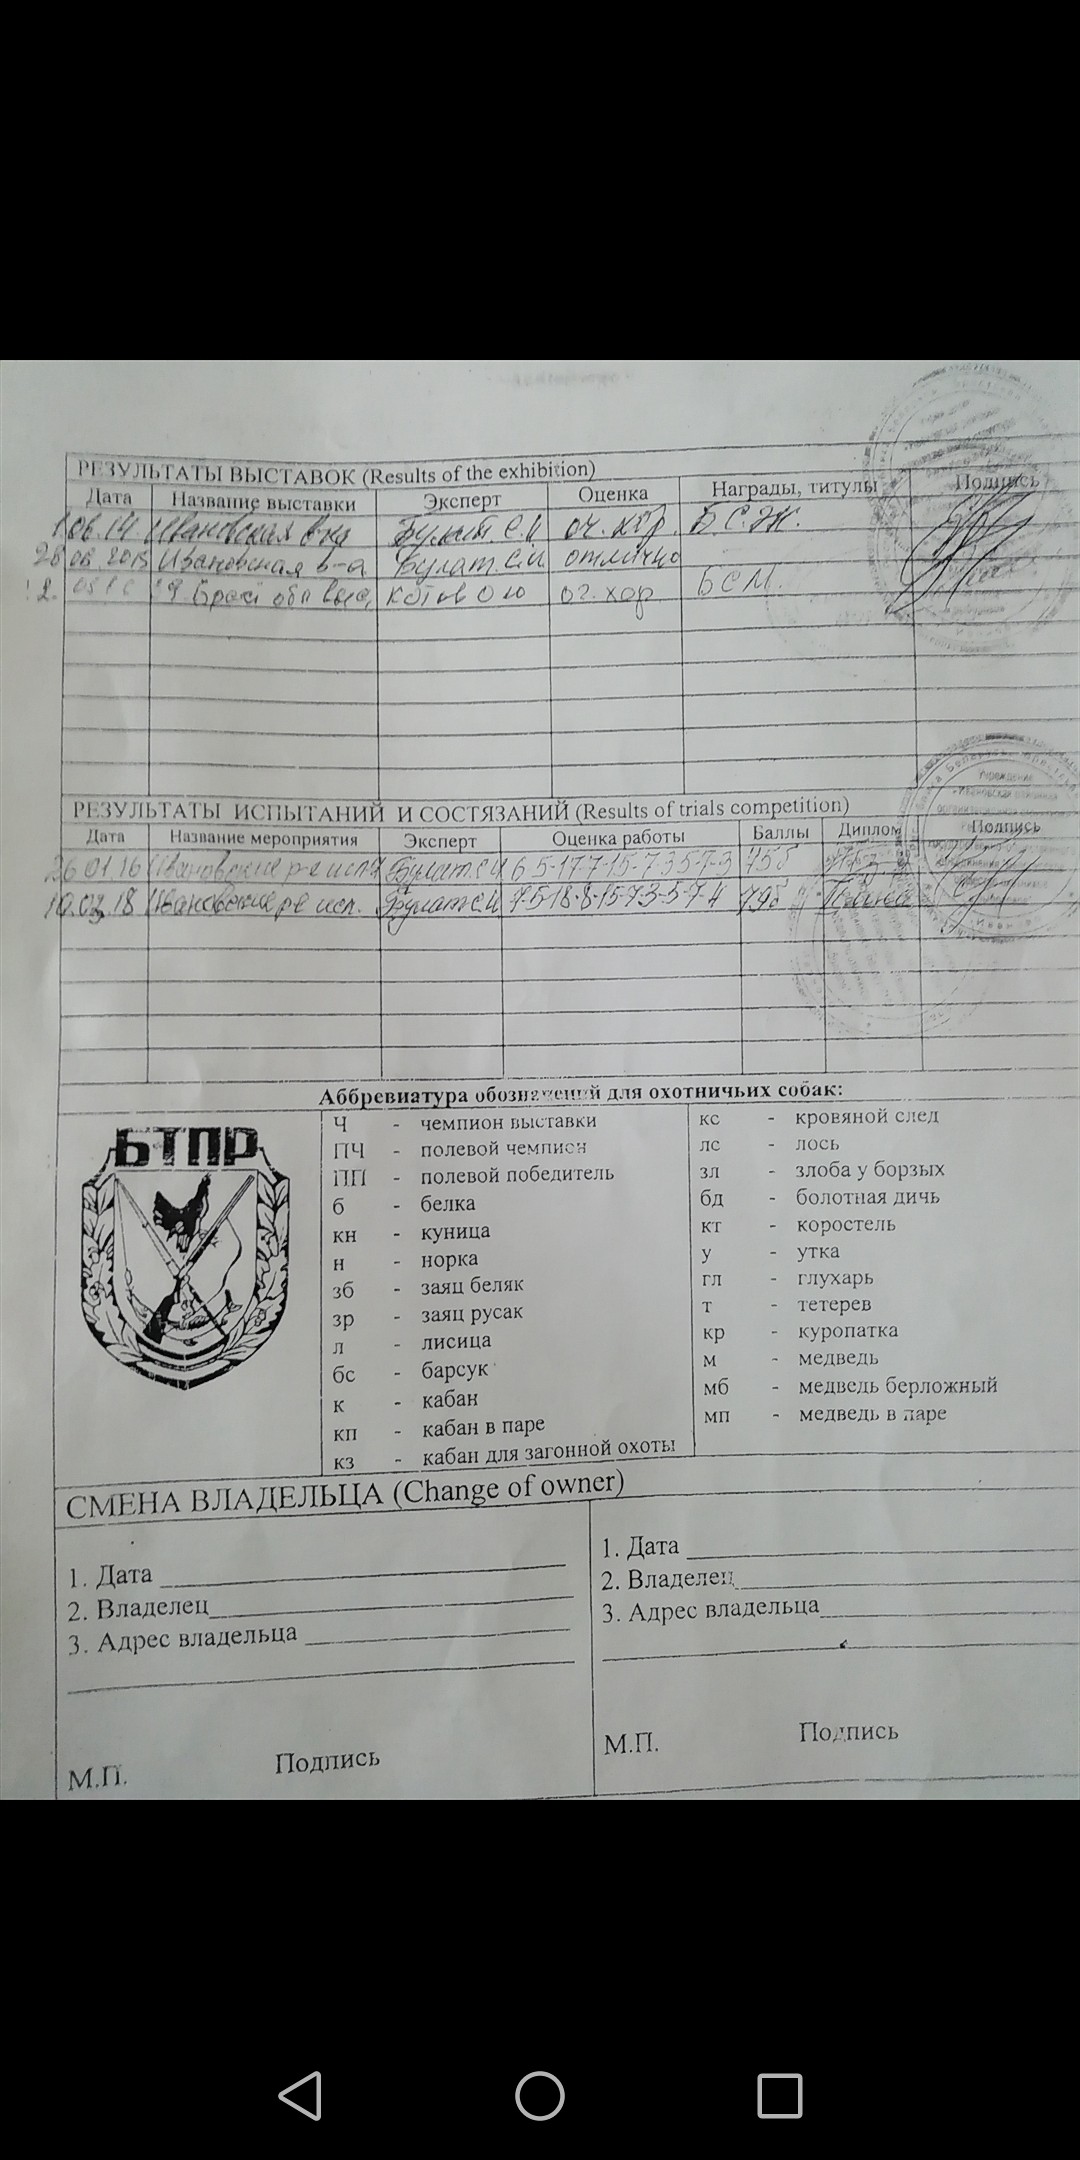 РЕЗУЛЬТАТЫ ВЫСТАВОК (Results of the exhibition)
Дата Название выставки Эксперт Оценка Награды, титулы Подпись
.06.14 Ивановская Булат С.И оч. хор. Б.С.Ж.
28 06 2015 Ивановская в-а Булат С.И отлично
Брест обл выс, Котов О Ю оч. хор БСМ.
РЕЗУЛЬТАТЫ ИСПЫТАНИЙ И СОСТЯЗАНИЙ (Results of trials competition)
Дата Название мероприятия Эксперт Оценка работы Баллы Диплом Подпись
26.01.16 Ивановские р-е исп Булат С.И 6-5-17-7-15-7-3-5-7-3 75б
10.03.18 Ивановские р-е исп. Булат С.И 7-5-18-8-15-7-3-5-7-4 79б
Аббревиатура обозначений для охотничьих собак:
БТПР
Ч - чемпион выставки
ПЧ - полевой чемпион
ПП - полевой победитель
б - белка
кн - куница
н - норка
зб - заяц беляк
зр - заяц русак
л - лисица
бс - барсук
к - кабан
кп - кабан в паре
кз - кабан для загонной охоты
кс - кровяной след
лс - лось
зл - злоба у борзых
бд - болотная дичь
кт - коростель
у - утка
гл - глухарь
т - тетерев
кр - куропатка
м - медведь
мб - медведь берложный
мп - медведь в паре
СМЕНА ВЛАДЕЛЬЦА (Change of owner)
1. Дата
2. Владелец
3. Адрес владельца
М.П. Подпись
1. Дата
2. Владелец
3. Адрес владельца
М.П. Подпись